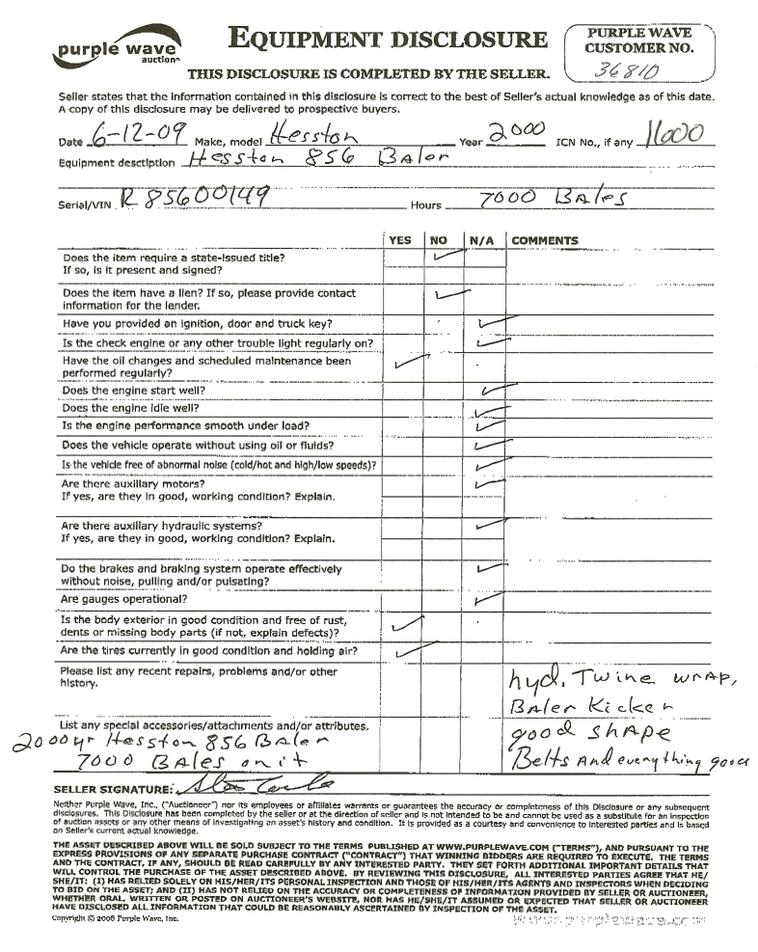 purple wave
auction
EQUIPMENT DISCLOSURE
THIS DISCLOSURE IS COMPLETED BY THE SELLER.
PURPLE WAVE
CUSTOMER NO.
36810
Seller states that the information contained in this disclosure is correct to the best of Seller's actual knowledge as of this date.
A copy of this disclosure may be delivered to prospective buyers.
Date 6-12-09 Make, model Hesston Year 2000 ICN No., if any 11000
Equipment description Hesston 856 Baler
Serial/VIN R 85600149 Hours 7000 BAles
YES NO N/A COMMENTS
Does the item require a state-issued title?
If so, is it present and signed?
Does the item have a lien? If so, please provide contact
information for the lender.
Have you provided an ignition, door and truck key?
Is the check engine or any other trouble light regularly on?
Have the oil changes and scheduled maintenance been
performed regularly?
Does the engine start well?
Does the engine idle well?
Is the engine performance smooth under load?
Does the vehicle operate without using oil or fluids?
Is the vehicle free of abnormal noise (cold/hot and high/low speeds)?
Are there auxiliary motors?
If yes, are they in good, working condition? Explain.
Are there auxiliary hydraulic systems?
If yes, are they in good, working condition? Explain.
Do the brakes and braking system operate effectively
without noise, pulling and/or pulsating?
Are gauges operational?
Is the body exterior in good condition and free of rust,
dents or missing body parts (if not, explain defects)?
Are the tires currently in good condition and holding air?
Please list any recent repairs, problems and/or other
history.
hyd, Twine wrap,
Baler Kicker
List any special accessories/attachments and/or attributes.
2000yr Hesston 856 Baler
7000 Bales on it
good shape
Belts And everything good
SELLER SIGNATURE:
Neither Purple Wave, Inc., ("Auctioneer") nor its employees or affiliates warrants or guarantees the accuracy or completeness of this Disclosure or any subsequent
disclosures. This Disclosure has been completed by the seller or at the direction of seller and is not intended to be and cannot be used as a substitute for an inspection
of auction assets or any other means of investigating an asset's history and condition. It is provided as a courtesy and convenience to interested parties and is based
on Seller's current actual knowledge.
THE ASSET DESCRIBED ABOVE WILL BE SOLD SUBJECT TO THE TERMS PUBLISHED AT WWW.PURPLEWAVE.COM ("TERMS"), AND PURSUANT TO THE
EXPRESS PROVISIONS OF ANY SEPARATE PURCHASE CONTRACT ("CONTRACT") THAT WINNING BIDDERS ARE REQUIRED TO EXECUTE. THE TERMS
AND THE CONTRACT, IF ANY, SHOULD BE READ CAREFULLY BY ANY INTERESTED PARTY. THEY SET FORTH ADDITIONAL IMPORTANT DETAILS THAT
WILL CONTROL THE PURCHASE OF THE ASSET DESCRIBED ABOVE. BY REVIEWING THIS DISCLOSURE, ALL INTERESTED PARTIES AGREE THAT HE/
SHE/IT: (I) HAS RELIED SOLELY ON HIS/HER/ITS PERSONAL INSPECTION AND THOSE OF HIS/HER/ITS AGENTS AND INSPECTORS WHEN DECIDING
TO BID ON THE ASSET; AND (II) HAS NOT RELIED ON THE ACCURACY OR COMPLETENESS OF INFORMATION PROVIDED BY SELLER OR AUCTIONEER,
WHETHER ORAL, WRITTEN OR POSTED ON AUCTIONEER'S WEBSITE, NOR HAS HE/SHE/IT ASSUMED OR EXPECTED THAT SELLER OR AUCTIONEER
HAVE DISCLOSED ALL INFORMATION THAT COULD BE REASONABLY ASCERTAINED BY INSPECTION OF THE ASSET.
Copyright © 2008 Purple Wave, Inc.
www.purplewave.com